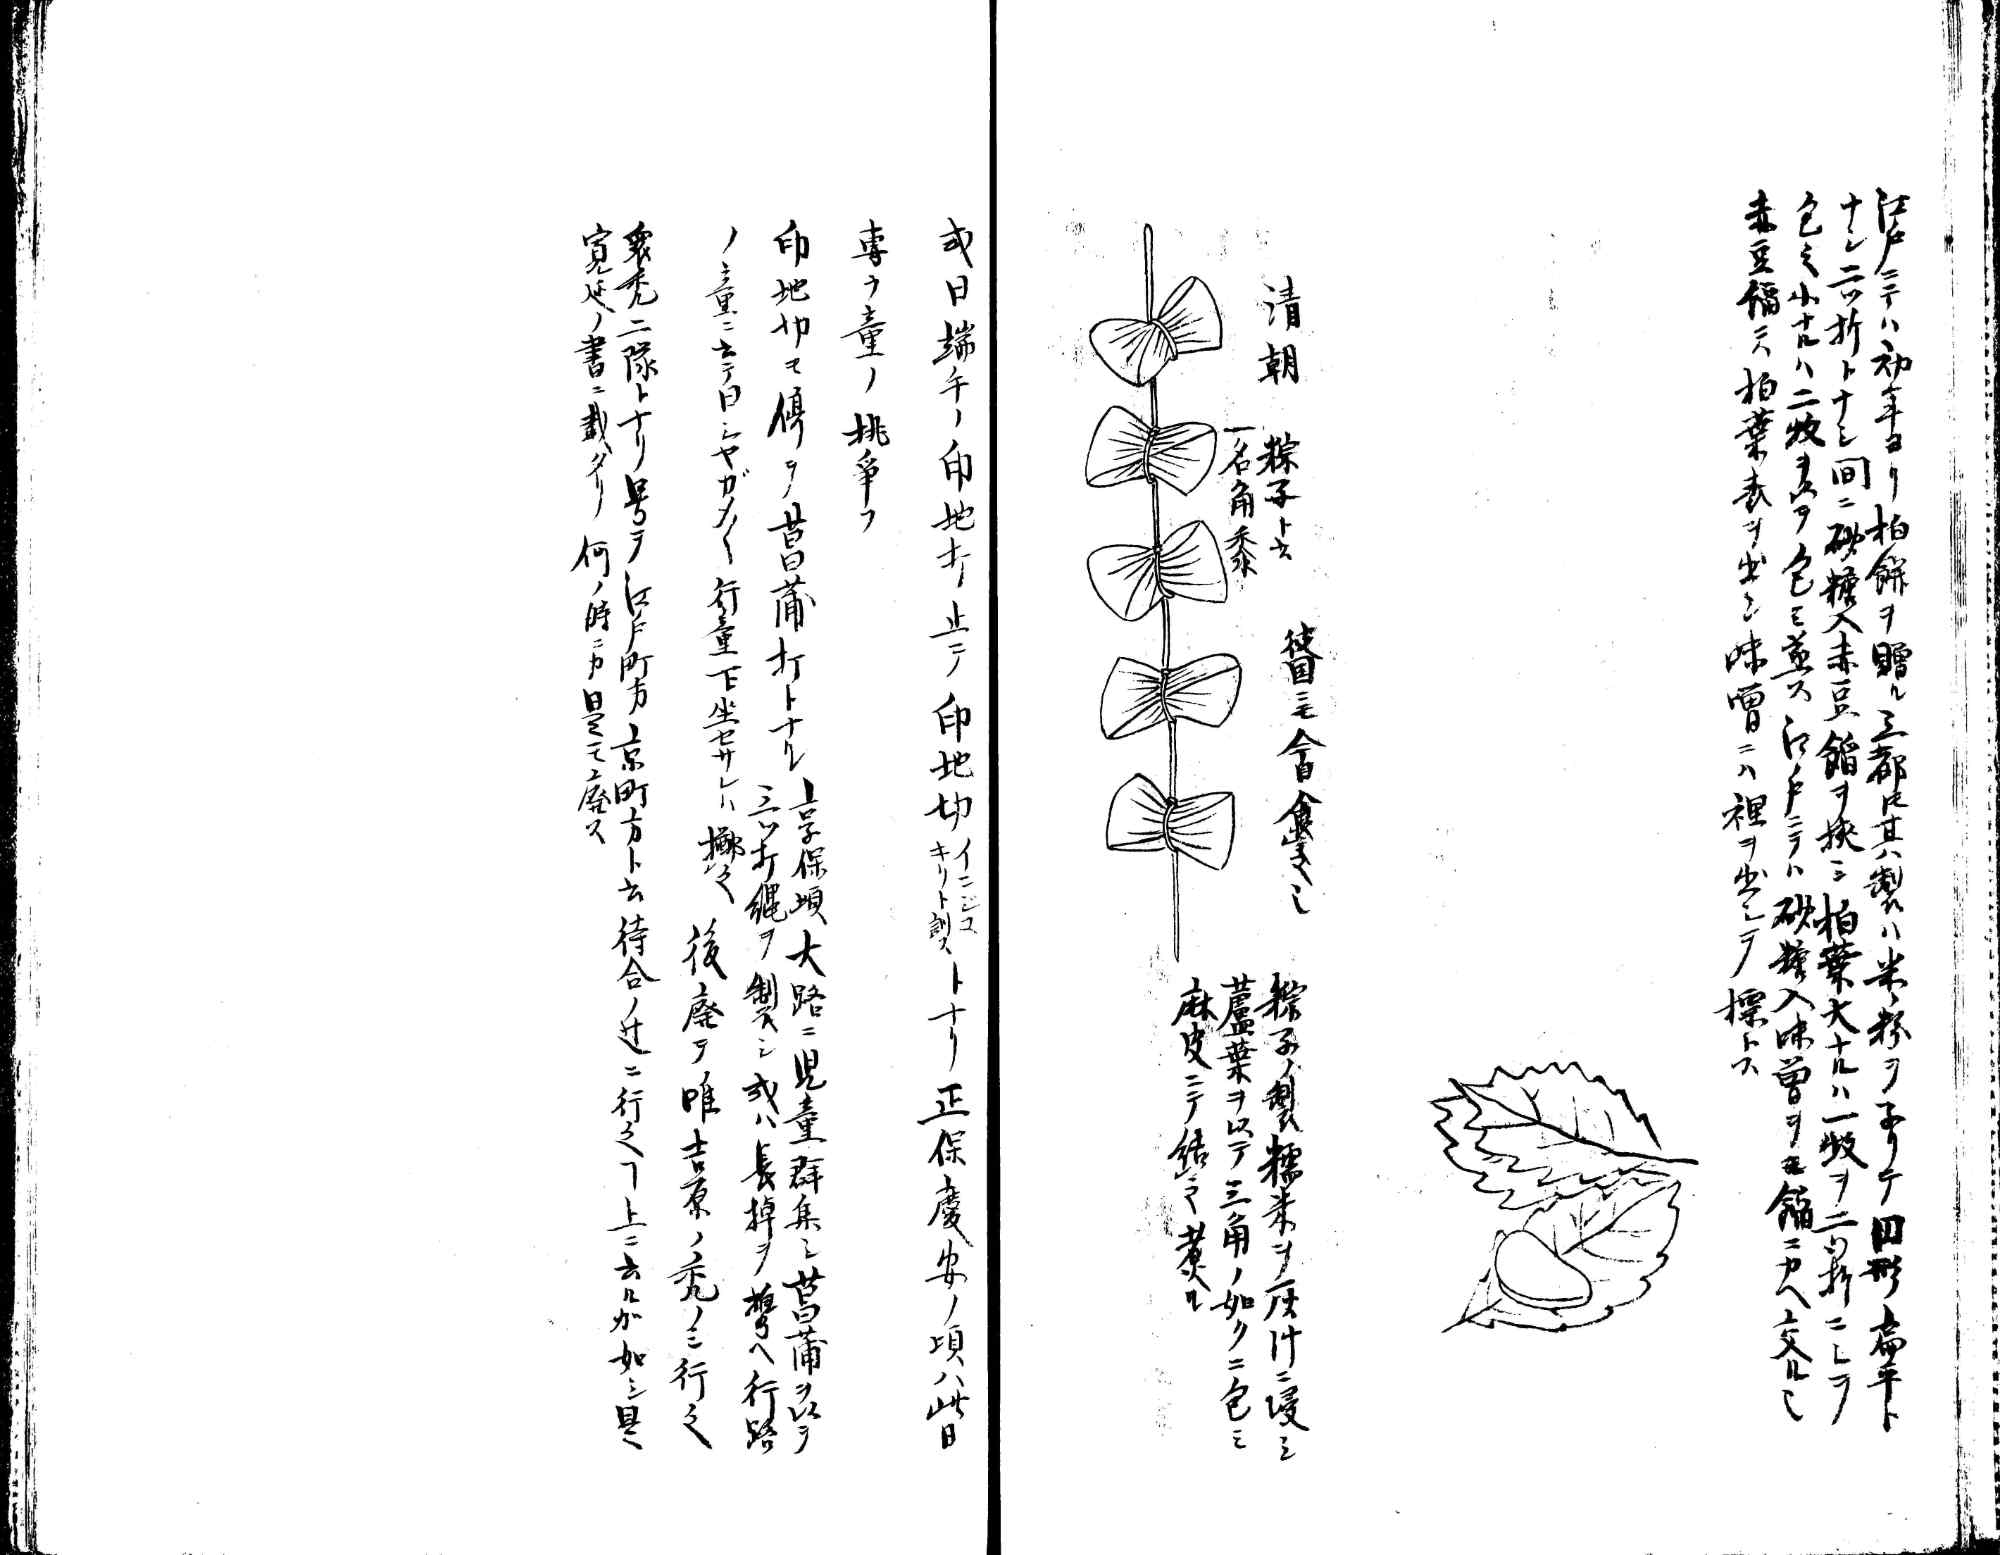 江戸ニテハ初年ヨリ柏餅ヲ贈ル三都トモ其製ハ米ノ粉ヲ子リテ円形扁平ト
ナシ二ツ折トナシ間ニ砂糖入赤豆餡ヲ挟ミ柏葉大ナルハ一枚ヲ二ツ折ニシテ
包之小ナルハ二枚ヲ以テ包ミ蒸ス江戸ニテハ砂糖入味噌ヲモ餡ニカヘ交ル也
赤豆餡ニハ柏葉表ヲ出シ味噌ニハ裡ヲ出シテ標トス
清朝
粽子ト云
一名角黍
彼国ニモ今日食之也
粽子ノ製糯米ヲ灰汁ニ浸シ
蘆葉ヲ以テ三角ノ如クニ包ミ
麻皮ニテ結之煮ル
或日端午ノ印地打止テ印地切イニンジ
キリト訓ストナリ正保慶安ノ頃ハ此日
専ラ童ノ挑争フ
印地切モ停テ菖蒲打トナル
享保頃大路ニ児童群集シ菖蒲ヲ以テ
三ツ打縄ヲ製シ或ハ長掉ヲ携ヘ行路
ノ童ニ云テ曰シヤガメ〱行童下坐セサレハ擲之
後廃テ唯吉原ノ禿ノミ行之
衆禿二隊トナリ号テ江戸町方京町方ト云待合ノ辻ニ行之ヿ上ニ云ルカ如シ是
寛延ノ書ニ載タリ何ノ時ニカ是モ廃ス